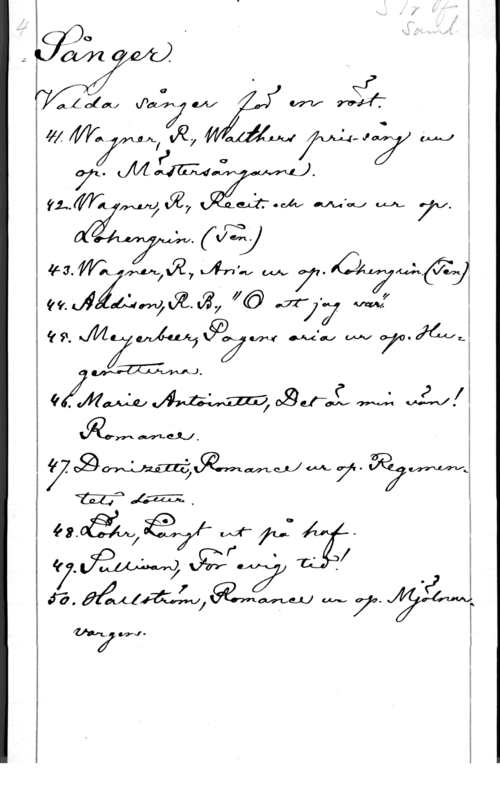 4
Sånger.
Valda sånger för en röst.
41. Wagner, R., Walthers pris-sång ur
op. Mästersångarne.
42. Wagner, R., Recit. och aria ur op.
Lohengrin. (Ten.)
43. Wagner, R., Aria ur op. Lohengrin (Ten.)
44. Addison, R. B., "O att jag var".
45. Meyerbeer, Pagens aria ur op. Hu=
genotterna.
46. Marie Antoinette, Det är min vän!
Romance.
47. Donizetti, Romance ur op. Regemen=
tets dotter.
48. Löhr, Långt ut på haf.
49. Sullivan, För evig tid!
50. Hallström, Romance ur op. Mjölnar=
vargen.